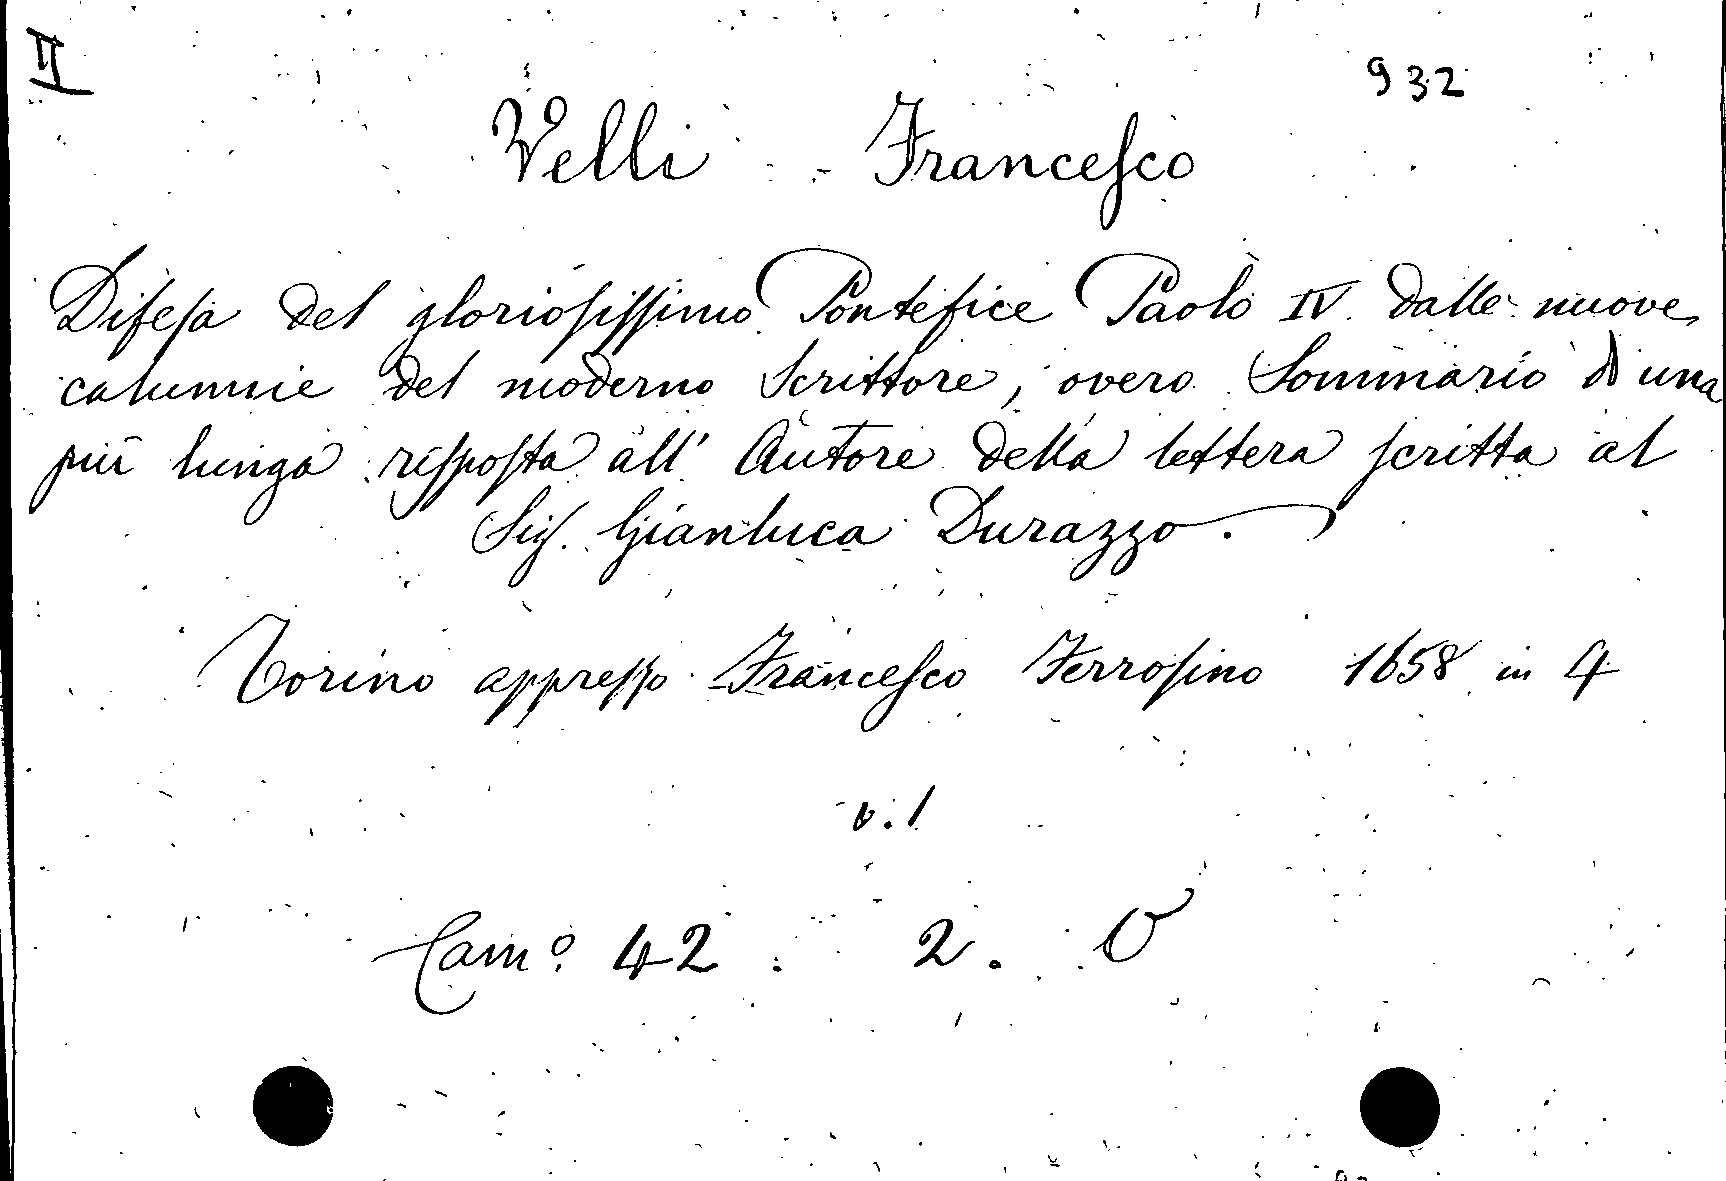 II
932
Velli Francesco
Difesa del gloriosissimo Pontefice Paolo IV. dalle nuove
calunnie del moderno Scrittore, overo Sommario di una
più lunga risposta all' Autore della lettera scritta al
Sig. Gianluca Durazzo.
Torino appresso Francesco Ferrosino 1658 in 4
v. 1
Cam.º 42 2. O